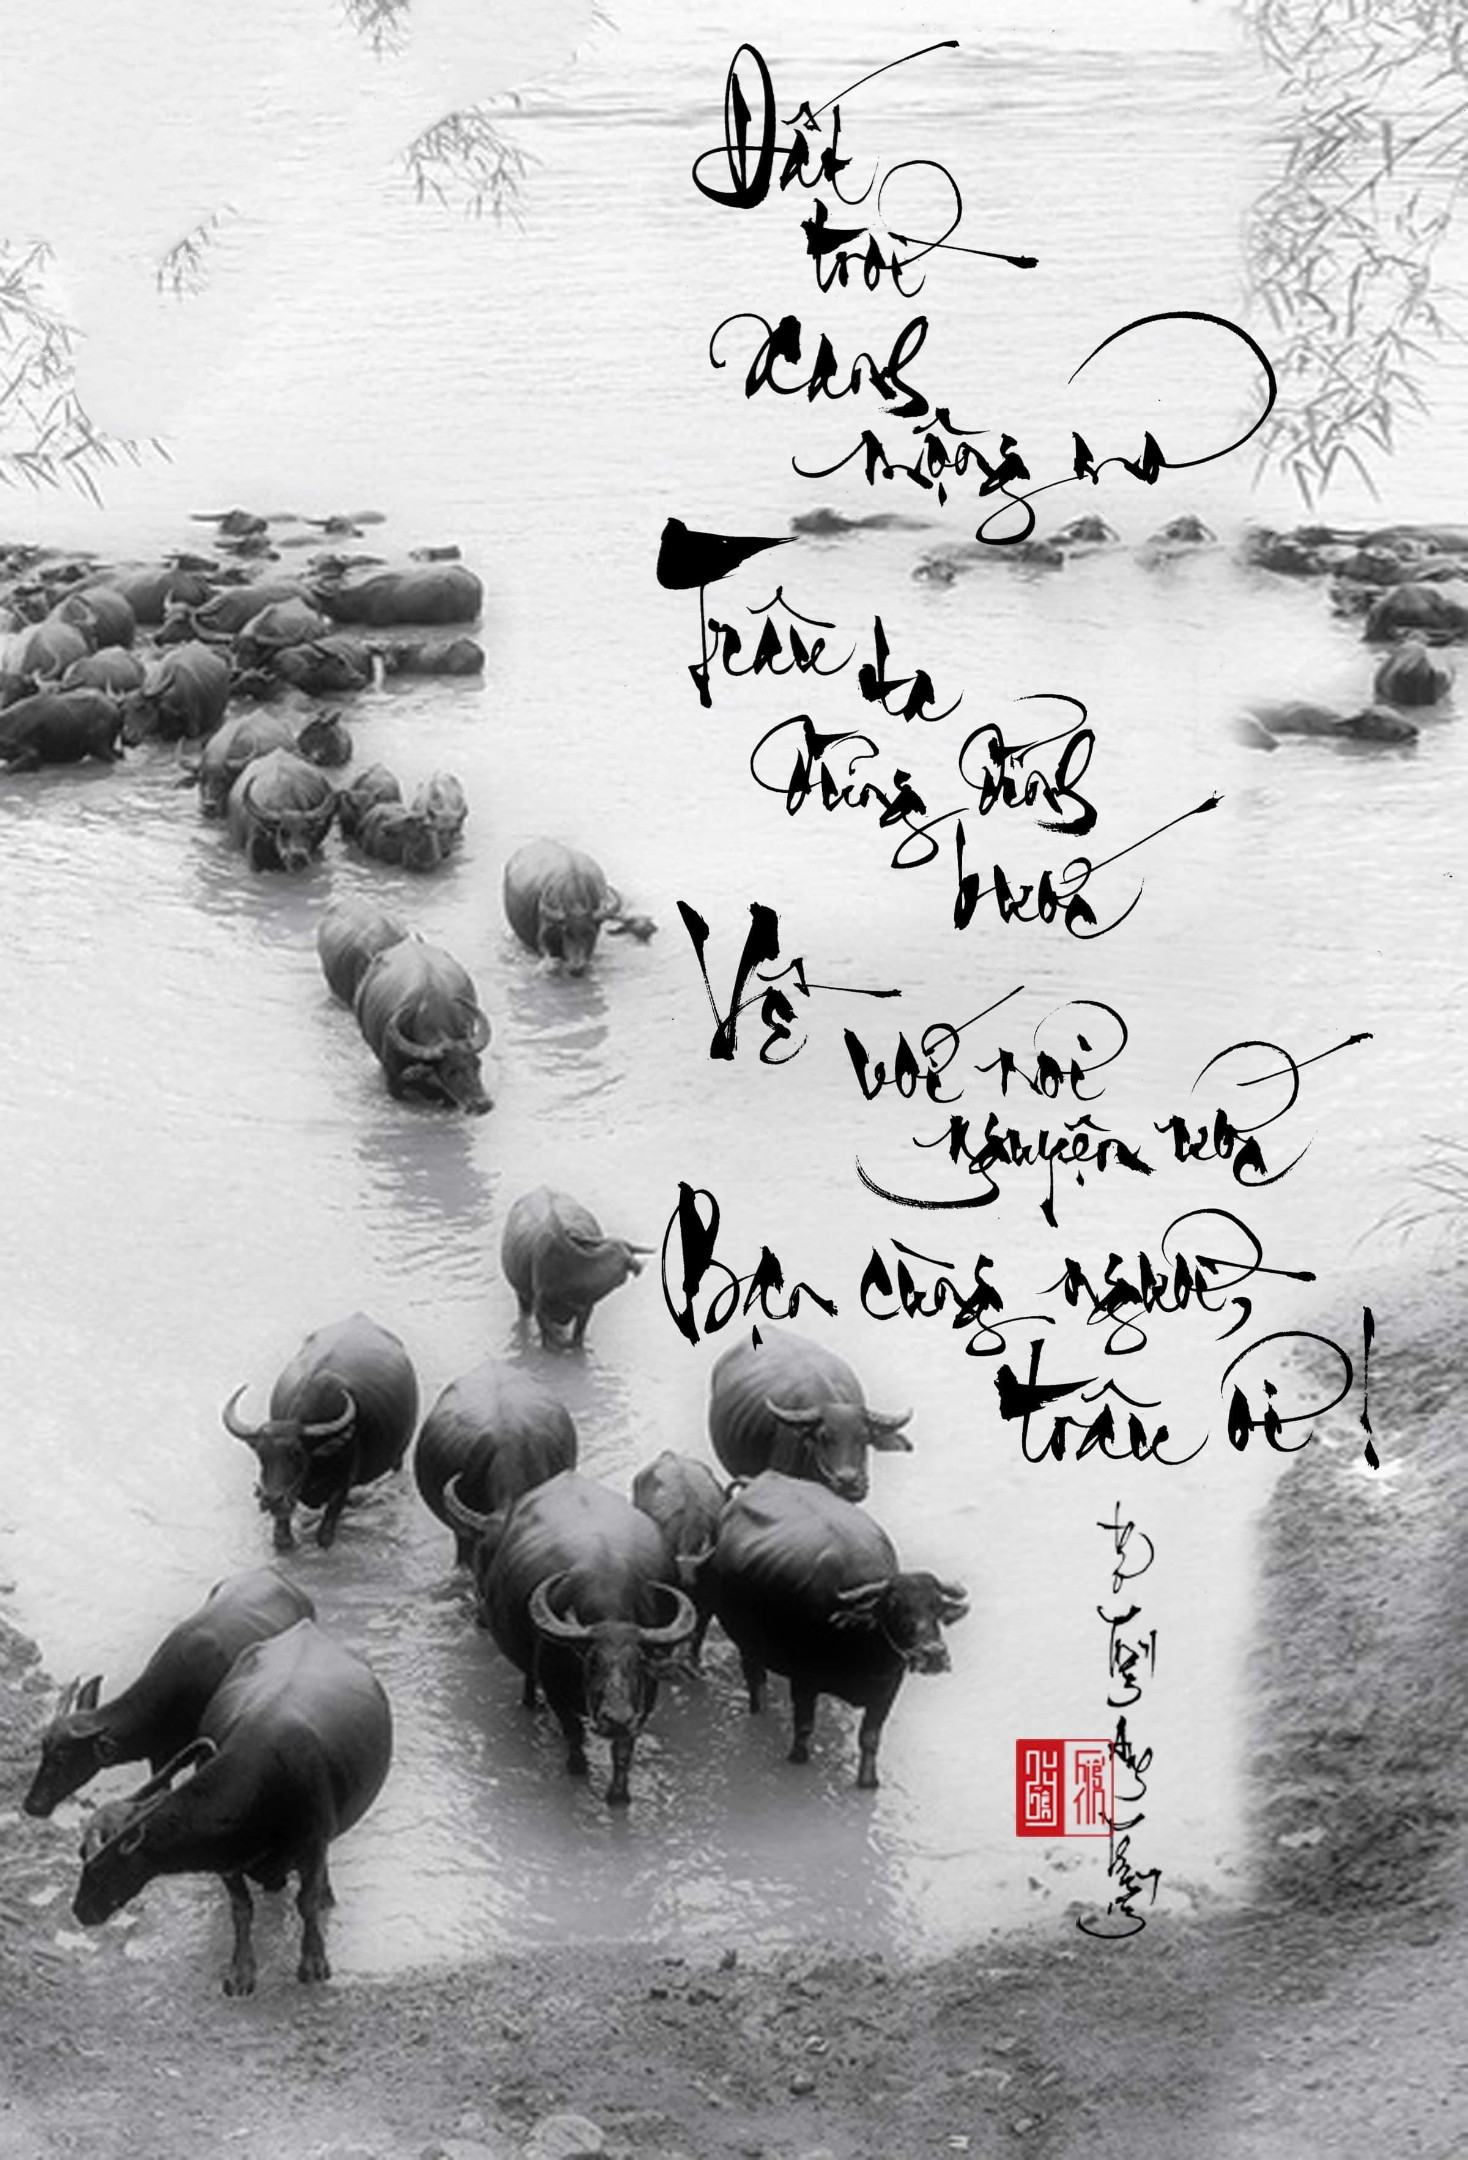 Đất
trời
Xanh
mộng mơ
Trâu đa
đủng đỉnh
bước
Về
với nơi
nguyện ước
Bạn cùng người,
trâu ơi!